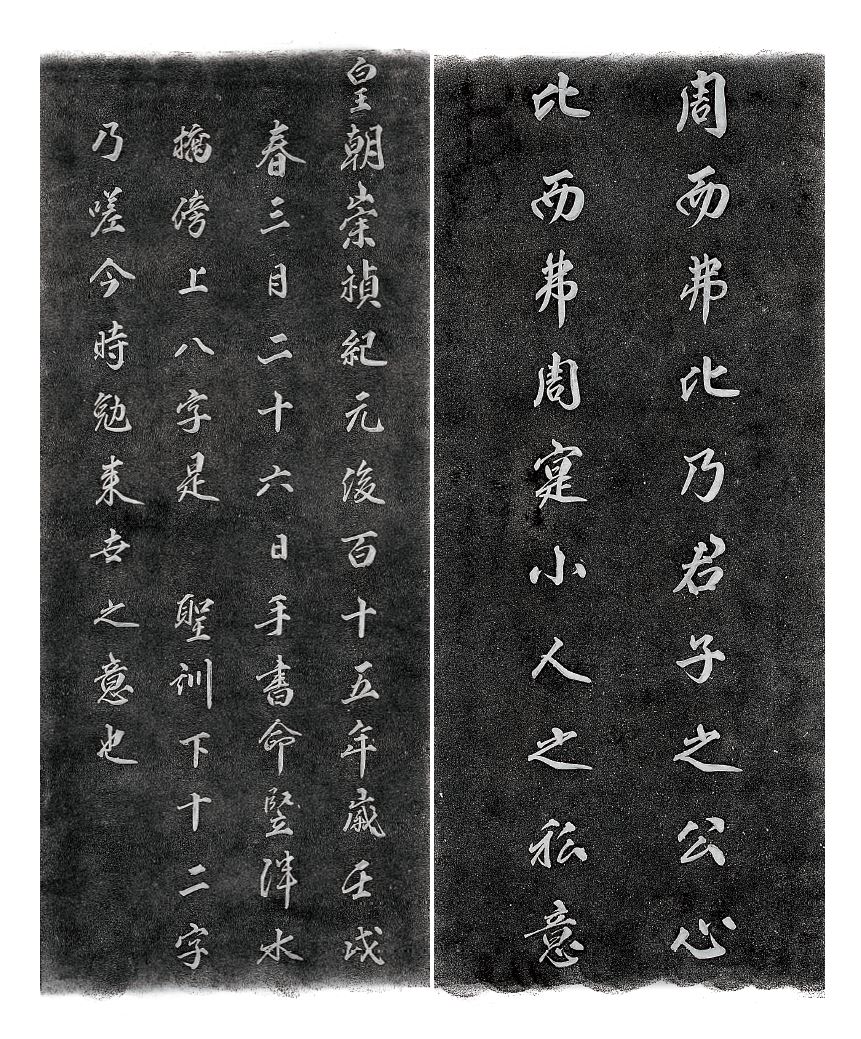 周而弗比乃君子之公心
比而弗周寔小人之私意
皇朝崇禎紀元後百十五年歲壬戌
春三月二十六日手書命竪泮水
橋傍上八字是 聖訓下十二字
乃嗟今時勉来世之意也